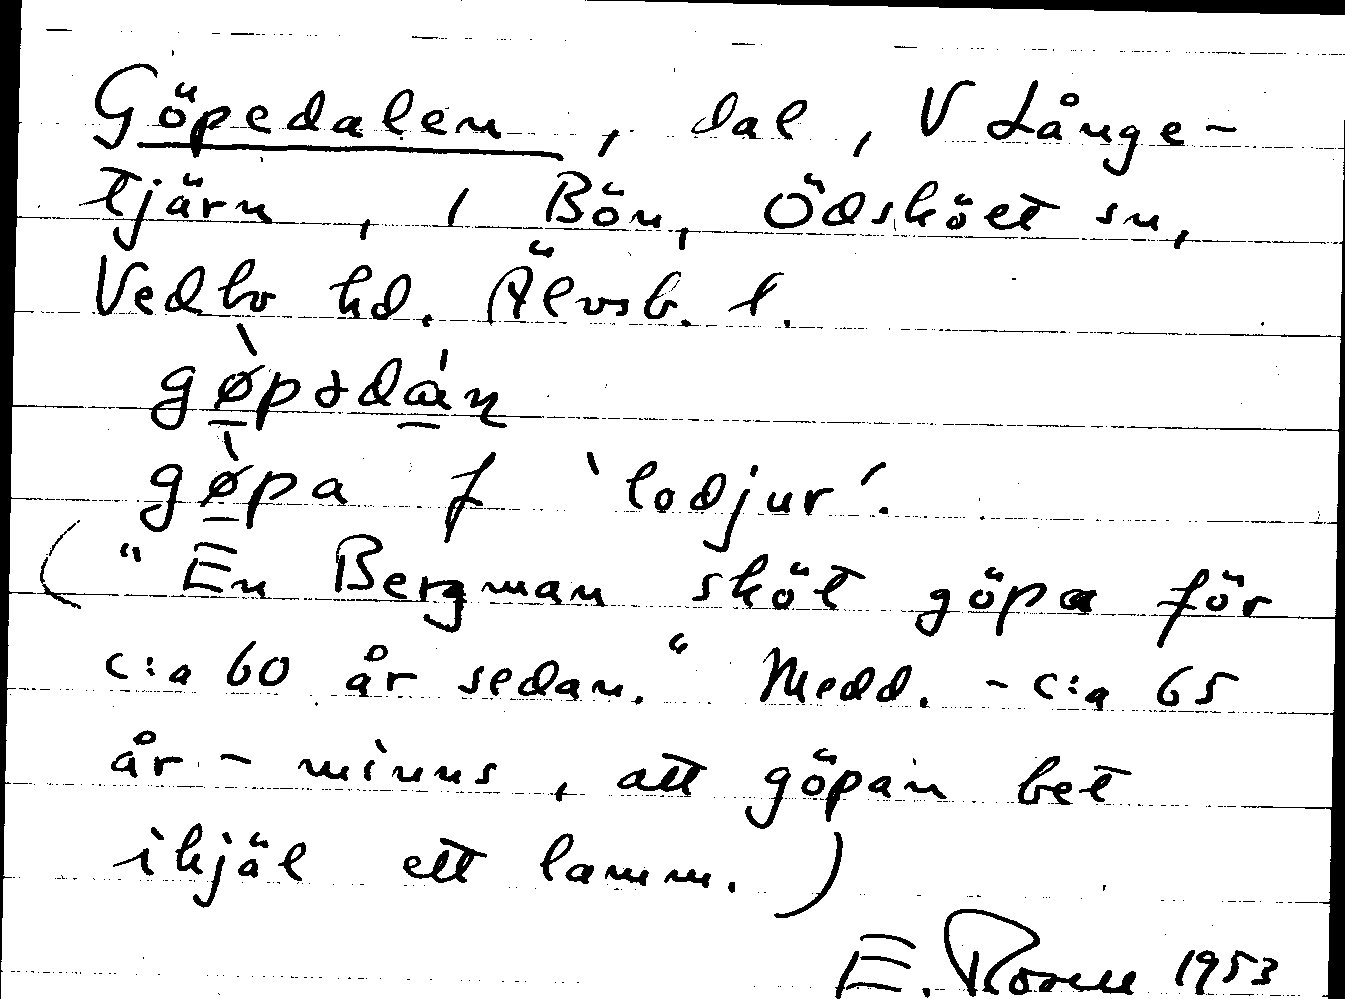 Göpedalen, dal, V Långe-
tjärn, 1 Bön, Ödsköet sn,
Vedbo hd. Älvsb. l.
gø̀pədán
gø̀pa f 'lodjur'.
("En Bergman sköt göpa för
c:a 60 år sedan." Medd. - c:a 65
år - minns, att göpan bet
ihjäl ett lamm.)
E. 1953